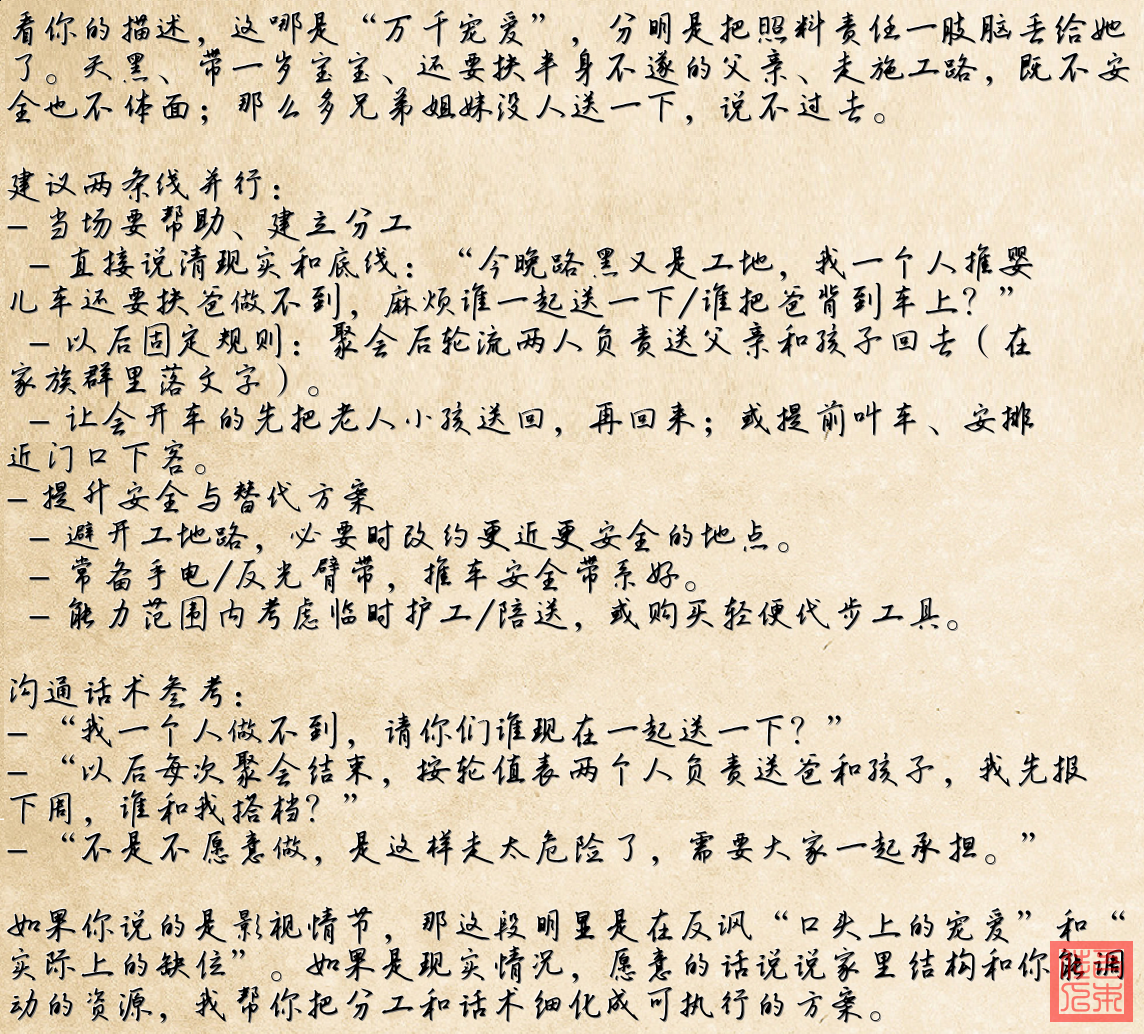 看你的描述，这哪是“万千宠爱”，分明是把照料责任一股脑丢给她
了。天黑、带一岁宝宝、还要扶半身不遂的父亲、走施工路，既不安
全也不体面；那么多兄弟姐妹没人送一下，说不过去。
建议两条线并行：
- 当场要帮助、建立分工
- 直接说清现实和底线：“今晚路黑又是工地，我一个人推婴
儿车还要扶爸做不到，麻烦谁一起送一下/谁把爸背到车上？”
- 以后固定规则：聚会后轮流两人负责送父亲和孩子回去（在
家族群里落文字）。
- 让会开车的先把老人小孩送回，再回来；或提前叫车、安排
近门口下客。
- 提升安全与替代方案
- 避开工地路，必要时改约更近更安全的地点。
- 常备手电/反光臂带，推车安全带系好。
- 能力范围内考虑临时护工/陪送，或购买轻便代步工具。
沟通话术参考：
- “我一个人做不到，请你们谁现在一起送一下？”
- “以后每次聚会结束，按轮值表两个人负责送爸和孩子，我先报
下周，谁和我搭档？”
- “不是不愿意做，是这样走太危险了，需要大家一起承担。”
如果你说的是影视情节，那这段明显是在反讽“口头上的宠爱”和“
实际上的缺位”。如果是现实情况，愿意的话说说家里结构和你能调
动的资源，我帮你把分工和话术细化成可执行的方案。